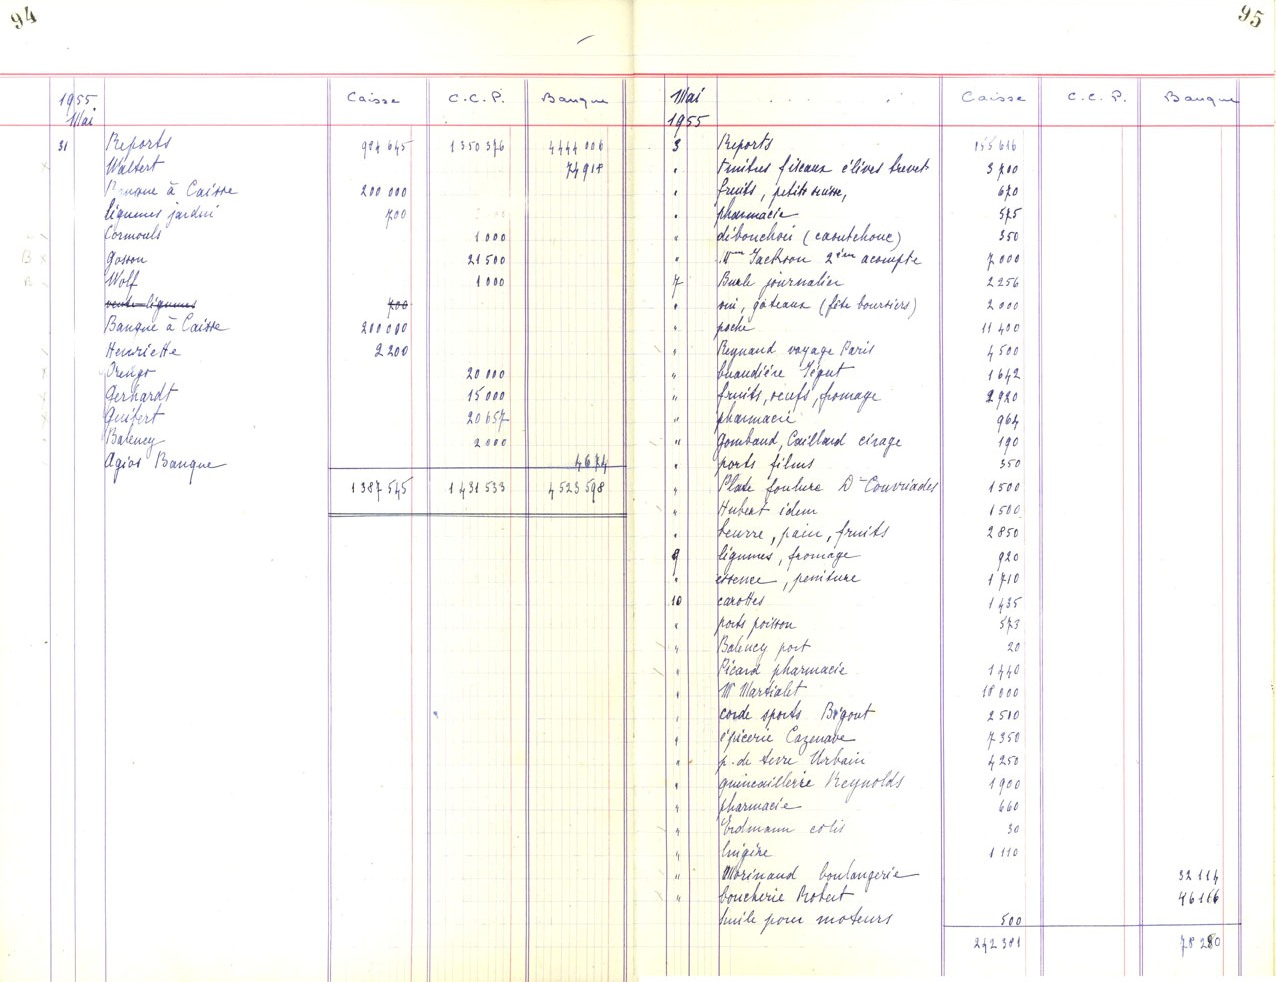 94
1955 Mai Caisse C.C.P. Banque
31 Reports 984 645 1 350 376 4 444 006
Waltert 74 918
Banque à Caisse 200 000
légumes jardin 700
Cormouls 1 000
Gosson 21 500
Wolf 1 000
vente légumes 700
Banque à Caisse 200 000
Henriette 2 200
20 000
Gerhardt 15 000
Guibert 20 657
Balency 2 000
Agios Banque 4 674
1 387 545 1 431 533 4 523 598
95
Mai 1955 Caisse C.C.P. Banque
3 Reports 155 616
" Timbres fiscaux élèves brevet 3 700
" fruits, petits suisse, 670
" pharmacie 575
" débouchoir (caoutchouc) 350
" Mme Jackson 2ème acompte 7 000
7 Buale journalier 2 256
" gâteaux (fête boursiers) 2 000
" poche 11 400
" Reynaud voyage Paris 4 500
" buandière Ségut 1 642
" fruits, oeufs, fromage 2 920
" pharmacie 964
" Gombaud, Caillaud cirage 190
" ports films 350
" Plate Dr Couvriades 1 500
" Hubert idem 1 500
" beurre, pain, fruits 2 850
9 légumes, fromage 920
" essence, peinture 1 710
10 carottes 1 435
" ports poisson 573
" Balency port 20
" Picard pharmacie 1 440
" Mr Martialet 18 000
" corde sports Bégout 2 510
" épicerie Cazenave 7 350
" p. de terre Urbain 4 250
" quincaillerie Reynolds 1 900
" pharmacie 660
" Erdmann colis 30
" lingère 1 110
" Morinaud boulangerie 32 114
" boucherie Robert 46 166
huile pour moteurs 500
242 381 78 280